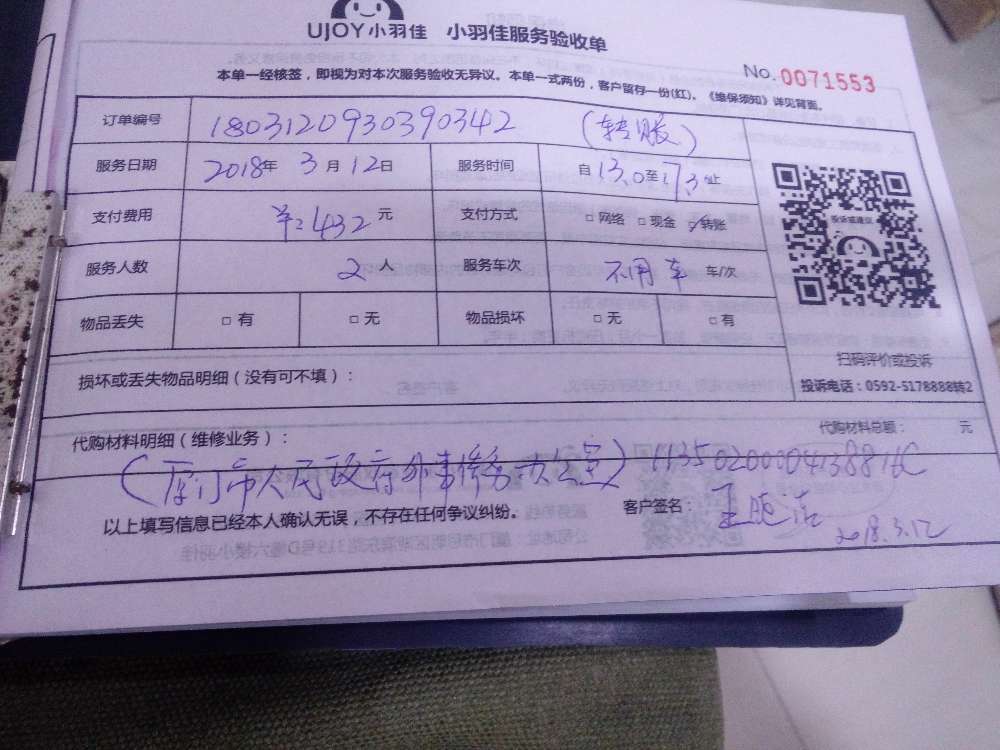 UJOY小羽佳 小羽佳服务验收单
No.0071553
本单一经核签，即视为对本次服务验收无异议。本单一式两份，客户留存一份(红)。《维保须知》详见背面。
订单编号 1803120930390342 (转账)
服务日期 2018年 3月12日 服务时间 自13.0至17.3止
支付费用 ¥:432元 支付方式 □网络 □现金 ☑转账
服务人数 2人 服务车次 不用车 车/次
物品丢失 □有 □无 物品损坏 □无 □有
投诉或建议
扫码评价或投诉
投诉电话：0592-5178888转2
损坏或丢失物品明细（没有可不填）：
代购材料明细（维修业务）： 代购材料总额： 元
(厦门市人民政府外事侨务办公室) 11350200004138816C
以上填写信息已经本人确认无误，不存在任何争议纠纷。 客户签名：
2018.3.12